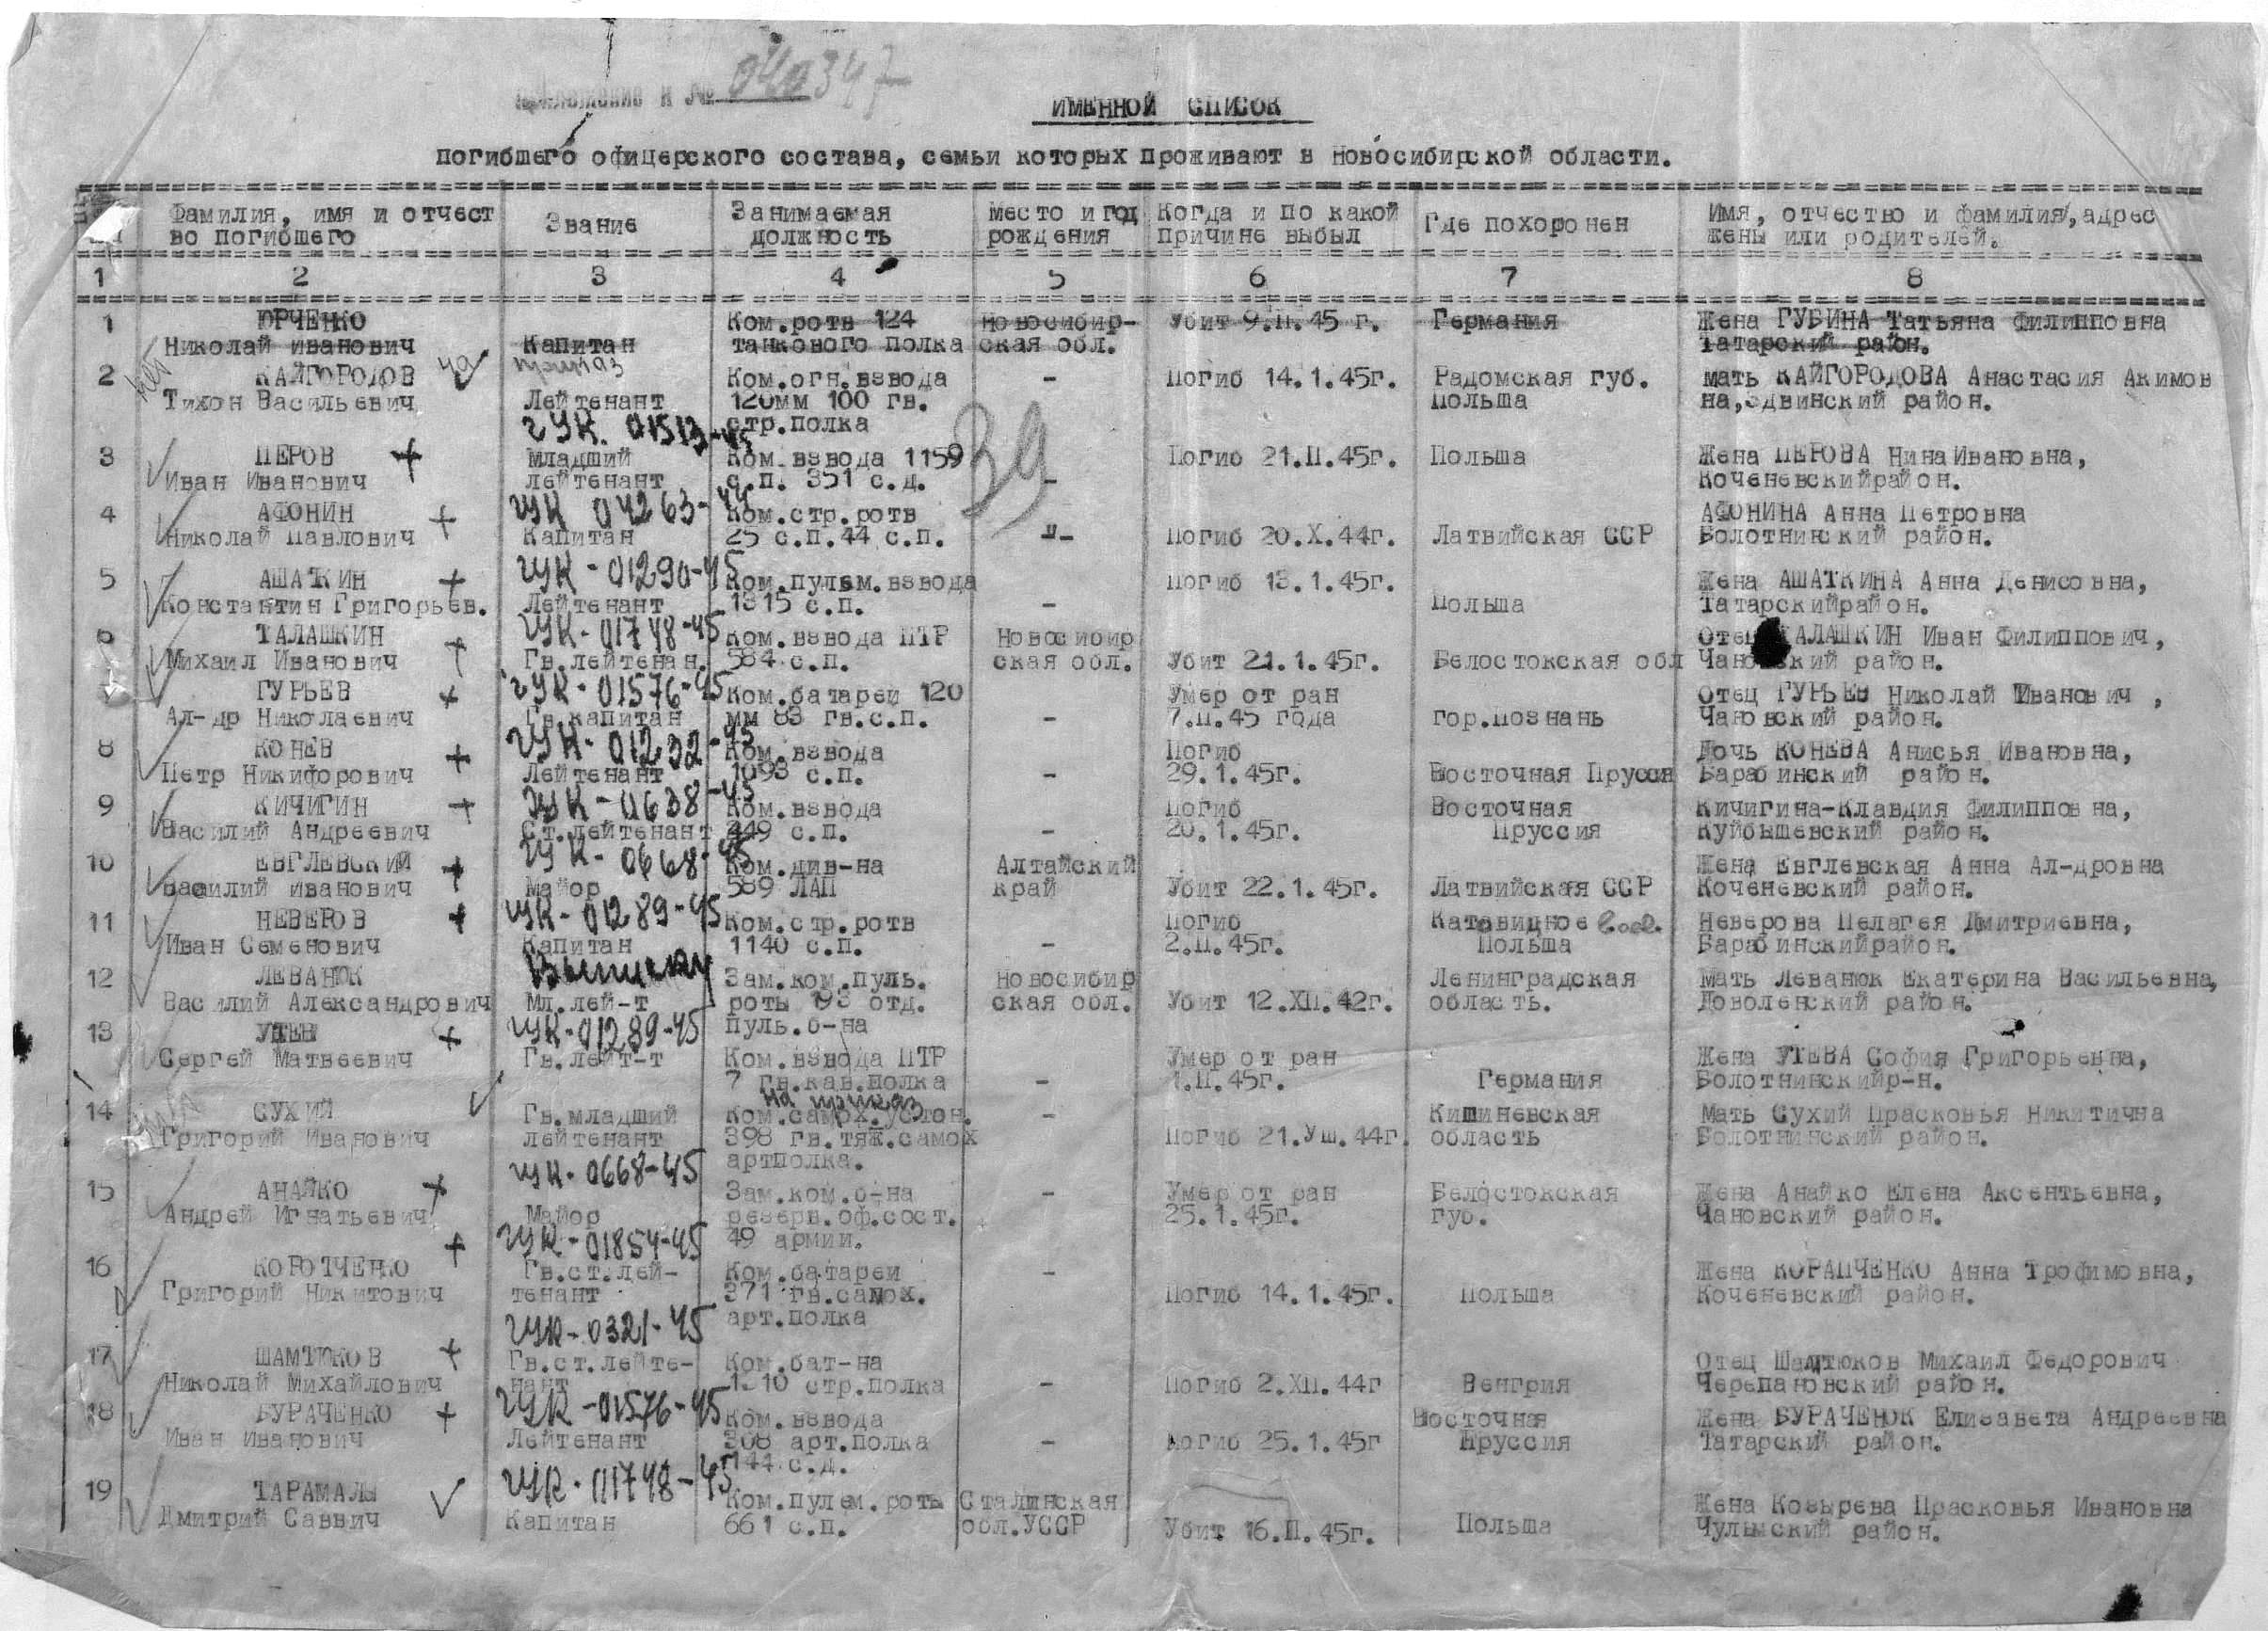 к № 040347
ИМЕННОЙ СПИСОК
погибшего офицерского состава, семьи которых проживают в Новосибирской области.
Фамилия, имя и отчест Звание Занимаемая место и год Когда и по какой Где похоронен Имя, отчество и фамилия, адрес
во погибшего должность рождения причине выбыл жены или родителей.
1 2 3 4 5 6 7 8
1 ЮРЧЕНКО Ком.роты 124 Новосибир- Убит 9.II.45 г. Германия Жена ГУБИНА Татьяна Филипповна
Николай Иванович Капитан танкового полка ская обл. Татарский район.
нет 2 КАЙГОРОДОВ на приказ Ком.огн.взвода - Погиб 14.1.45г. Радомская губ. мать КАЙГОРОДОВА Анастасия Акимов
Тихон Васильевич Лейтенант 120мм 100 гв. Польша на,Здвинский район.
ГУК. 01513-45 стр.полка
39
3 ПЕРОВ + младший Ком.взвода 1159 Погиб 21.II.45г. Польша Жена ПЕРОВА НинаИвановна,
Иван Иванович лейтенант с.п. 351 с.д. - Коченевскийрайон.
4 АФОНИН + ГУК 04263-44 Ком.стр.роты АФОНИНА Анна Петровна
Николай Павлович Капитан 25 с.п.44 с.п. "- Погиб 20.X.44г. Латвийская ССР Болотнинский район.
5 АШАТКИН + ГУК-01290-45 Ком.пулем.взвода Погиб 13.1.45г. Жена АШАТКИНА Анна Денисовна,
Константин Григорьев. Лейтенант 1315 с.п. - Польша Татарскийрайон.
6 ТАЛАШКИН + ГУК-01748-45 Ком.взвода ПТР Новосибир Отец ТАЛАШКИН Иван Филиппович,
Михаил Иванович Гв.лейтенан. 584 с.п. ская обл. Убит 21.1.45г. Белостокская обл Чановский район.
ГУРЬЕВ + ГУК-01576-45 Ком.батареи 120 Умер от ран Отец ГУРЬЕВ Николай Иванович ,
Ал-др Николаевич Гв.капитан мм 83 гв.с.п. - 7.II.45 года гор.Познань Чановский район.
8 КОНЕВ + ГУК-01232-45 Ком.взвода Погиб Дочь КОНЕВА Анисья Ивановна,
Петр Никифорович Лейтенант 1093 с.п. - 29.1.45г. Восточная Прусси Барабинский район.
9 КИЧИГИН + ГУК-0638-45 Ком.взвода Погиб Восточная Кичигина-Клавдия Филипповна,
Василий Андреевич Ст.лейтенант 449 с.п. - 20.1.45г. Пруссия Куйбышевский район.
10 ЕВГЛЕВСКИЙ + ГУК-0668-45 Ком.див-на Алтайский Жена Евглевская Анна Ал-дровна
Василий Иванович Майор 589 ЛАП край Убит 22.1.45г. Латвийская ССР Коченевский район.
11 НЕВЕРОВ + ГУК-01289-45 Ком.стр.роты Погиб Катовицкое воев. Неверова Пелагея Дмитриевна,
Иван Семенович Капитан 1140 с.п. - 2.II.45г. Польша Барабинскийрайон.
12 ЛЕВАНЮК Выписку Зам.ком.пуль. Новосибир Ленинградская Мать Леванюк Екатерина Васильевна,
Василий Александрович Мл.лей-т роты 193 отд. ская обл. Убит 12.XII.42г. область. Доволенский район.
13 УТЕВ + ГУК-01289-45 пуль.б-на
Сергей Матвеевич Гв.лейт-т Ком.взвода ПТР Умер от ран Жена УТЕВА София Григорьевна,
7 гв.кав.полка - 1.II.45г. Германия Болотнинскийр-н.
на приказ
14 СУХИЙ Гв.младший Ком.самох.устон. - Кишиневская Мать Сухий Прасковья Никитична
Григорий Иванович лейтенант 398 гв.тяж.самох Погиб 21.УШ.44г. область Болотнинский район.
ГУК-0668-45 артполка.
15 АНАЙКО + Зам.ком.б-на - Умер от ран Белостокская Жена Анайко Елена Аксентьевна,
Андрей Игнатьевич Майор резерв.оф.сост. 25.1.45г. губ. Чановский район.
+ ГУК-01854-45 49 армии.
16 КОРОТЧЕНКО Гв.ст.лей- Ком.батареи - Жена КОРАПЧЕНКО Анна Трофимовна,
Григорий Никитович тенант 371 гв.самох. Погиб 14.1.45г. Польша Коченевский район.
ГУК-0321-45 арт.полка
17 ШАМТЮКОВ + Гв.ст.лейте- Ком.бат-на Отец Шамтюков Михаил Федорович
Николай Михайлович нант 1310 стр.полка - Погиб 2.XII.44г Венгрия Черепановский район.
18 БУРАЧЕНКО + ГУК-01576-45 Ком.взвода Восточная Жена БУРАЧЕНОК Елизавета Андреевна
Иван Иванович Лейтенант 308 арт.полка - Погиб 25.1.45г Пруссия Татарский район.
144 с.д.
19 ТАРАМАЛЫ ГУК-01748-45 Ком.пулем.роты Сталинская Жена Козырева Прасковья Ивановна
Дмитрий Саввич Капитан 661 с.п. обл.УССР Убит 16.II.45г. Польша Чулымский район.